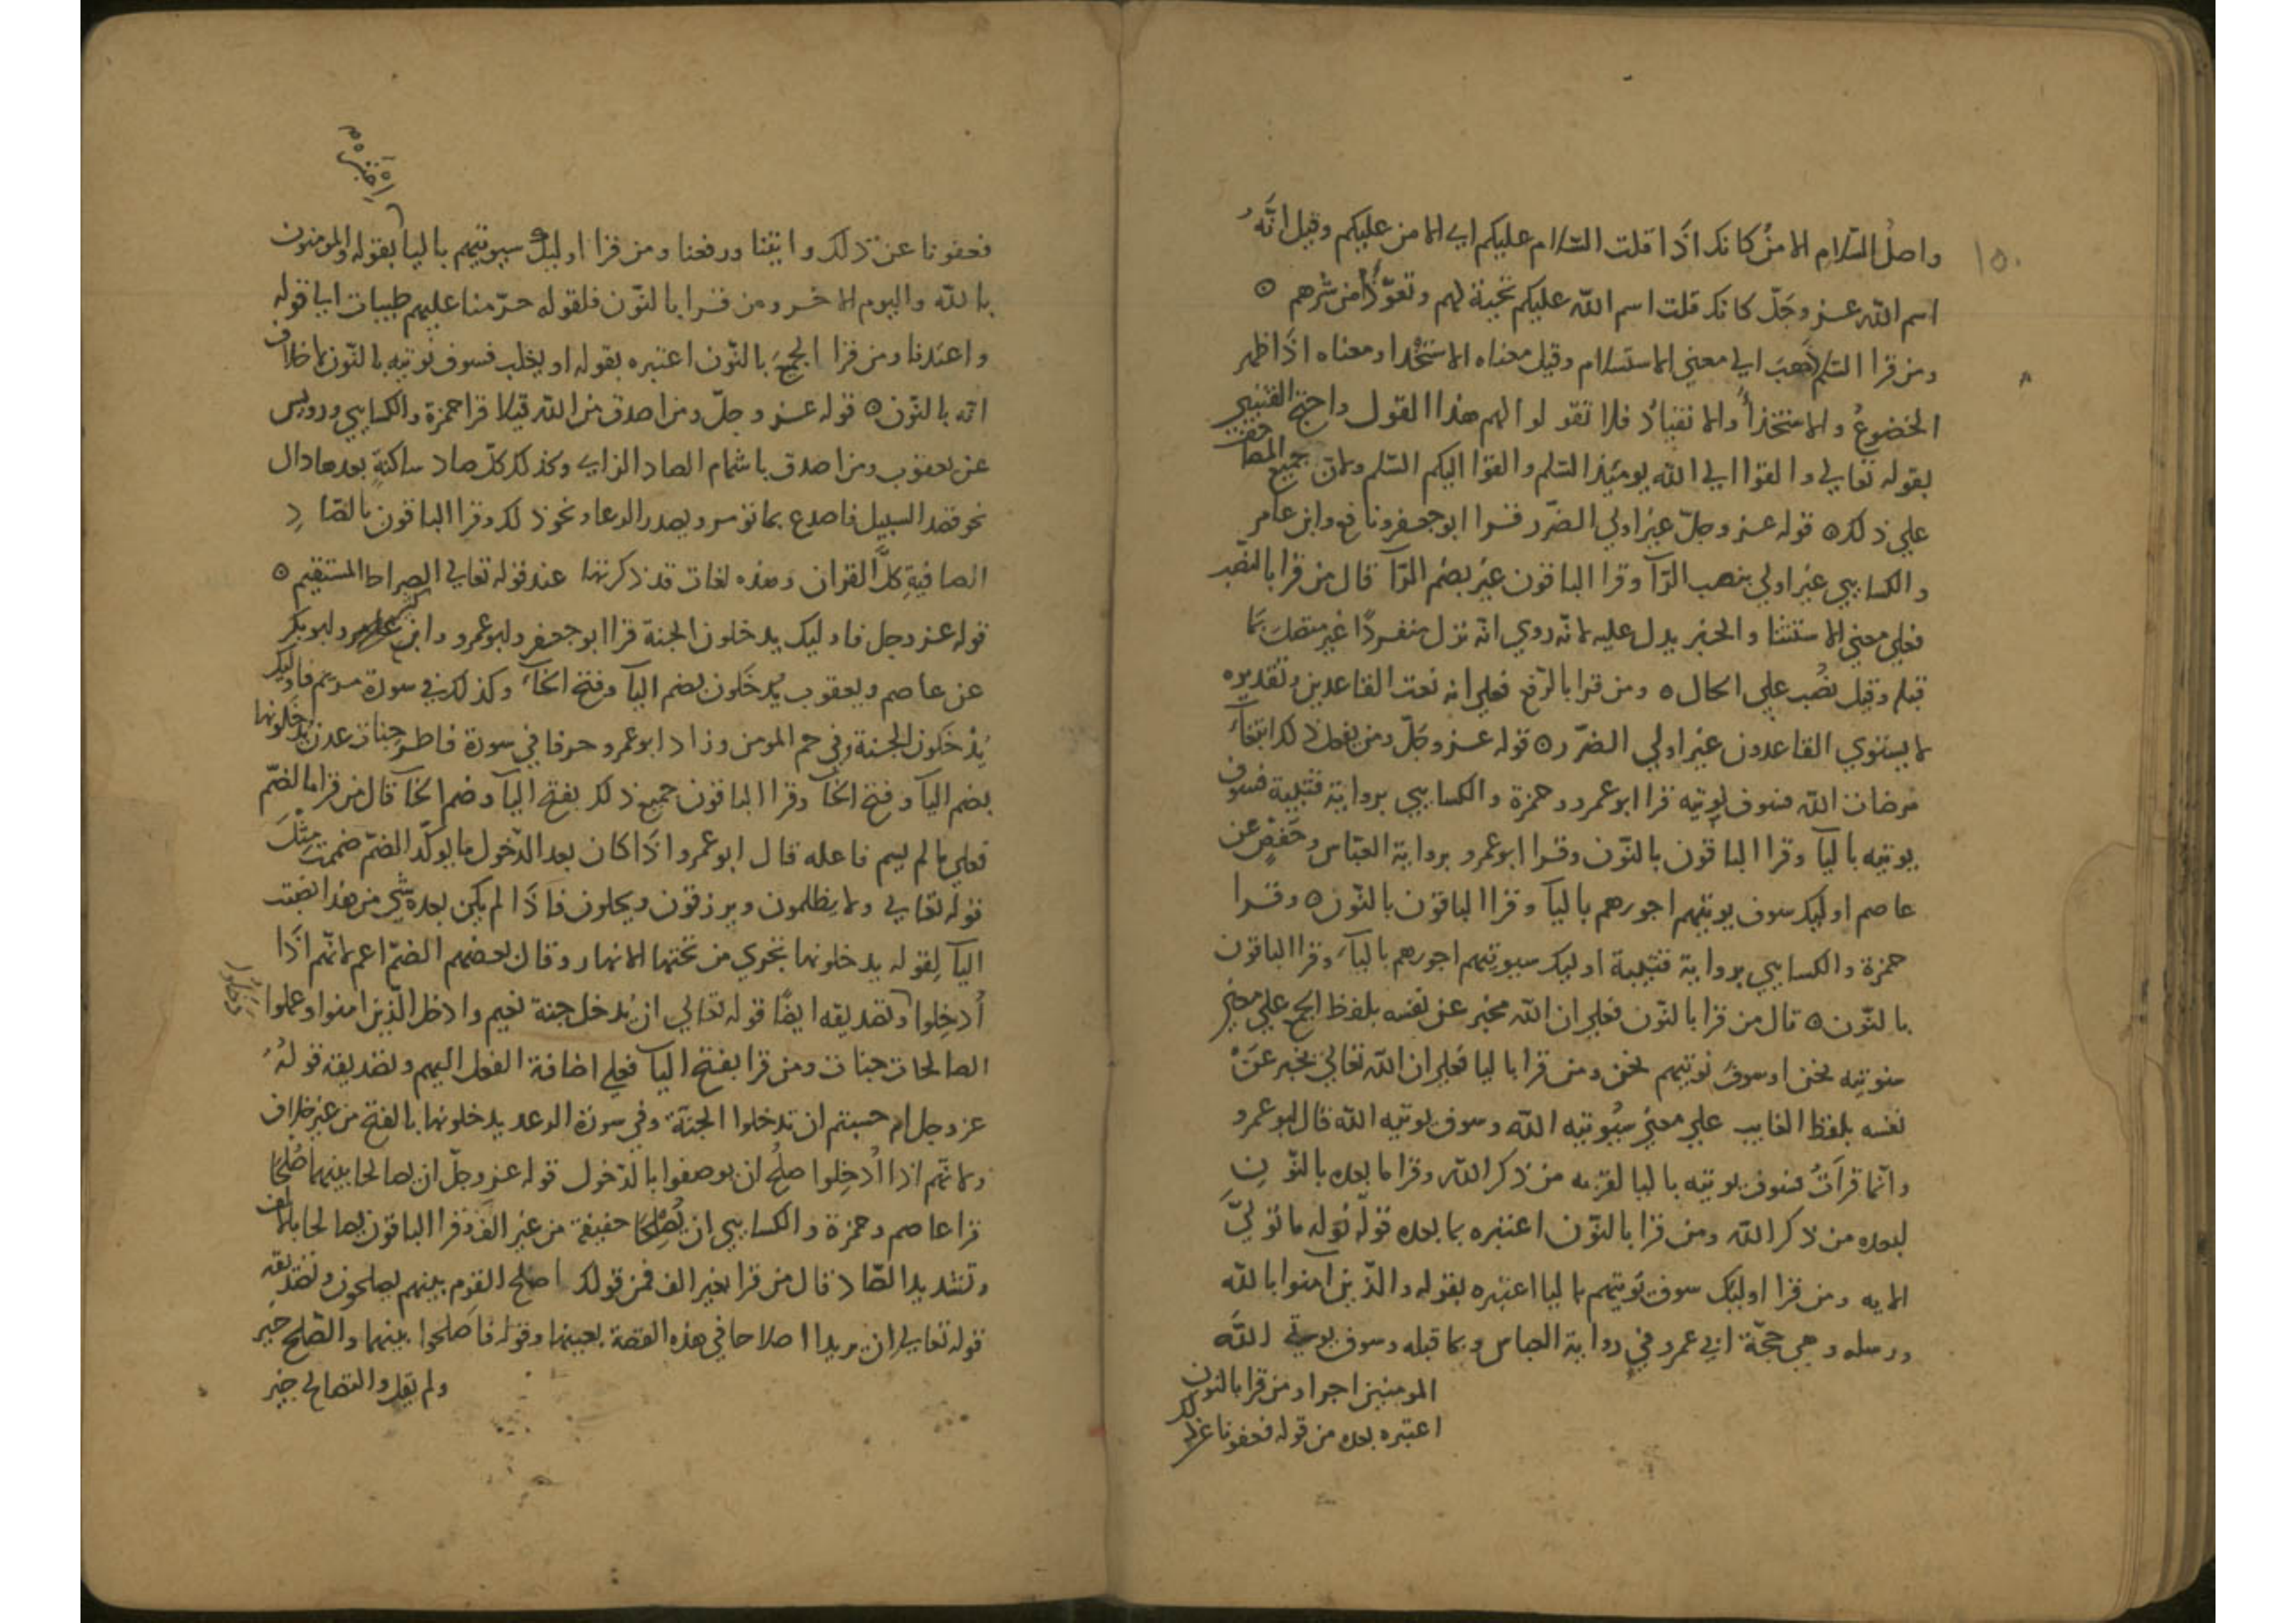 ١٥٠
واصل السلام الامن كانك اذا قلت السلام عليكم اي الامن عليكم وقيل انه
اسم الله عز وجل كانك قلت اسم الله عليكم تحية لهم وتعوذا من شرهم ٥
ومن قرا السلم ذهب الي معني الاستسلام وقيل معناه الاستخذا ومعناه اذا اظهر
الخضوع والاستخذا والانقياد فلا تقولوا لهم هذا القول واحتج القتيبي
بقوله تعالي والقوا الي الله يومئذ السلم والقوا اليكم السلم ولان جميع المصاحف
علي ذلك ٥ قوله عز وجل غير اولي الضرر قرا ابو جعفر ونافع وابن عامر
والكسايي غير اولي بنصب الرآ وقرا الباقون غير بضم الرآ قال من قرا بالنصب
فعلي معني الاستثنا والخبر يدل عليه لانه روي انه نزل منفردا غير متصل بما
قبله وقيل نصب علي الحال ٥ ومن قرا بالرفع فعلي انه نعت القاعدين وتقديره
لا يستوي القاعدون غير اولي الضرر ٥ قوله عز وجل ومن يفعل ذلك ابتغآء
مرضات الله فسوف يوتيه قرا ابو عمرو وحمزة والكسايي برواية قتيبة فسوف
يوتيه باليآ وقرا الباقون بالنون وقرا ابو عمرو برواية العباس وحفص عن
عاصم اوليك سوف يوتيهم اجورهم باليآ وقرا الباقون بالنون ٥ وقرا
حمزة والكسايي برواية قتيبة اوليك سيوتيهم اجورهم باليآء وقرا الباقون
بالنون ٥ قال من قرا بالنون فعلي ان الله مخبر عن نفسه بلفظ الجمع علي معني
سنوتيه نحن او سوف نوتيهم نحن ومن قرا باليا فعلي ان الله تعالي يخبر عن
نفسه بلفظ الغايب علي معني سيوتيه الله وسوف يوتيه الله قال ابو عمرو
وانما قرات فسوف يوتيه باليا لقربه من ذكر الله وقرا ما بعده بالنون
لبعده من ذكر الله ومن قرا بالنون اعتبره بما بعده قوله نوله ما تولي
الايه ومن قرا اوليك سوف يوتيهم باليا اعتبره بقوله والذين امنوا بالله
ورسله وهي حجة ابي عمرو في رواية العباس وبما قبله وسوف يوتي الله
المومنين اجرا ومن قرا بالنون
اعتبره بعده من قوله فعفونا عن ذلك
فعفونا عن ذلك واتينا ورفعنا ومن قرا اوليك سيوتيهم باليا بقوله والمومنون
بالله واليوم الاخر ومن قرا بالنون فلقوله حرمنا عليهم طيبات الي قوله
واعتدنا ومن قرا الجميع بالنون اعتبره بقوله او يغلب فسوف نوتيه بالنون لا خلاف
انه بالنون ٥ قوله عز وجل ومن اصدق من الله قيلا قرا حمزة والكسايي ورويس
عن يعقوب ومن اصدق باشمام الصاد الزاي وكذلك كل صاد ساكنة بعدها دال
نحو قصد السبيل فاصدع بما تومر ويصدر الرعا ونحو ذلك وقرا الباقون بالصاد
الصافية كل القران وهذه لغات قد ذكرتها عند قوله تعالي الصراط المستقيم ٥
قوله عز وجل فاوليك يدخلون الجنة قرا ابو جعفر وابو عمرو وابن كثير وابو بكر
عن عاصم ويعقوب يدخلون بضم اليآ وفتح الخآء وكذلك في سورة مريم فاوليك
يدخلون الجنة وفي حم المومن وزاد ابو عمرو حرفا في سورة فاطر جنات عدن يدخلونها
بضم اليآ وفتح الخآ وقرا الباقون جميع ذلك بفتح اليآ وضم الخآ قال من قرا بالضم
فعلي ما لم يسم فاعله قال ابو عمرو اذا كان بعد الدخول ما يوكد الضم ضممت مثل
قوله تعالي ولا يظلمون ويرزقون ويحلون فاذا لم يكن بعده شي من هذا نصبت
اليآ لقوله يدخلونها تجري من تحتها الانهار وقال بعضهم الضم اعم لانهم اذا
أدخلوا وتصديقه ايضا قوله تعالي ان يدخل جنة نعيم وادخل الذين امنوا وعملوا
الصالحات جنات ومن قرا بفتح اليآ فعلي اضافة الفعل اليهم وتصديقه قوله
عز وجل ام حسبتم ان تدخلوا الجنة وفي سورة الرعد يدخلونها بالفتح من غير خلاف
ولانهم اذا ادخلوا صلح ان يوصفوا بالدخول قوله عز وجل ان يصالحا بينهما صلحا
قرا عاصم وحمزة والكسايي ان يصلحا خفيفة من غير الف وقرا الباقون يصالحا بالف
وتشديد الصاد قال من قرا بغير الف فمن قولك اصلح القوم بينهم يصلحون وتصديقه
قوله تعالي ان يريدا اصلاحا في هذه القصة بعينها وقوله فاصلحوا بينهما والصلح خير
ولم يقل والتصالح خير